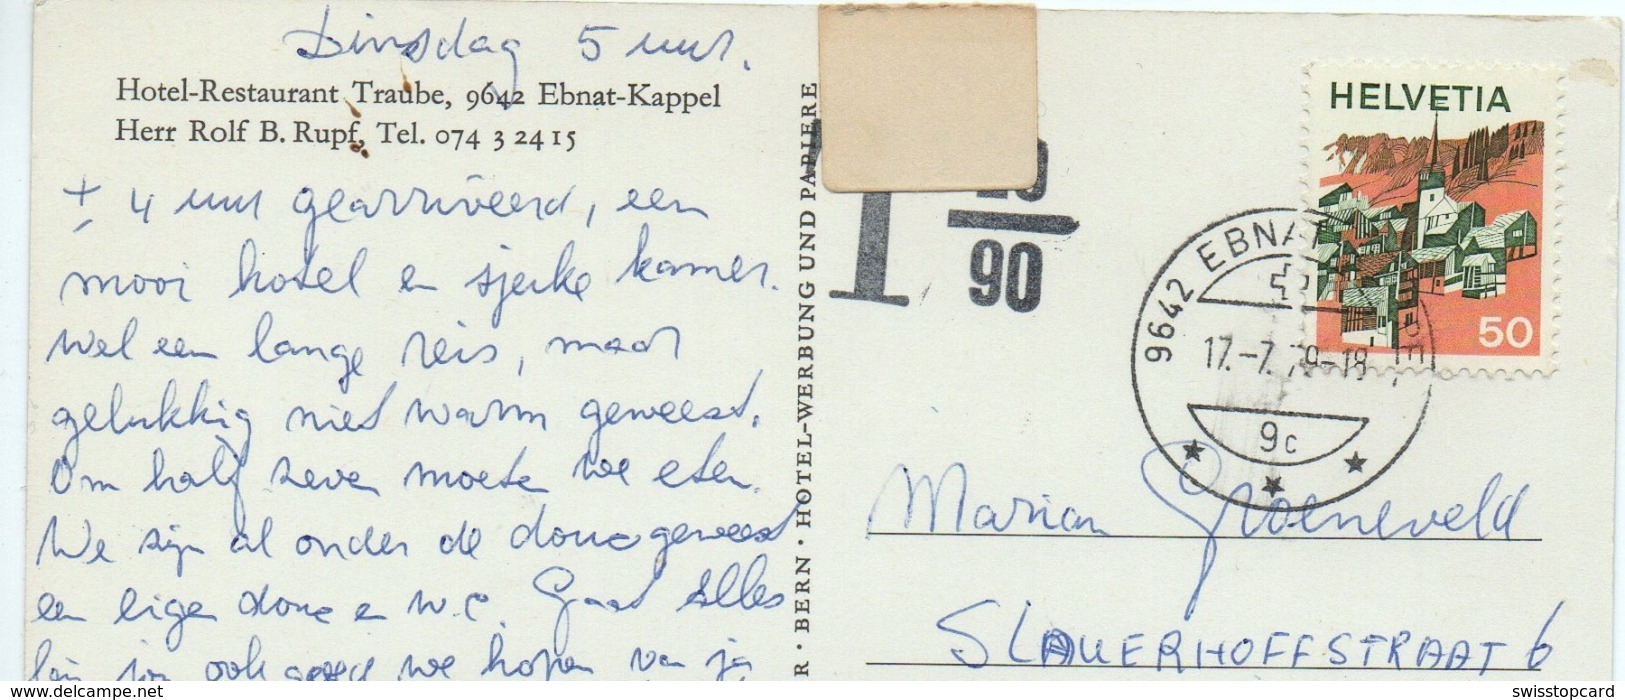 Dinsdag 5 uur.
Hotel-Restaurant Traube, 9642 Ebnat-Kappel
Herr Rolf B. Rupf, Tel. 074 3 24 15
± 4 uur gearriveerd, een
mooi hotel en sjieke kamer.
Wel een lange reis, maar
gelukkig niet warm geweest.
Om half zeven moeten we eten.
We zijn al onder de douche geweest
een eigen douche en w.c. Gaat alles
bij jou ook goed we hopen van ja
R · BERN · HOTEL-WERBUNG UND PAPIERE
T
90
HELVETIA
50
9642 EBNAT
17.-7.79-18
9c
Marian Groeneveld
SLAUERHOFFSTRAAT 6
Hotel & Resort > Franking
swisstopcard